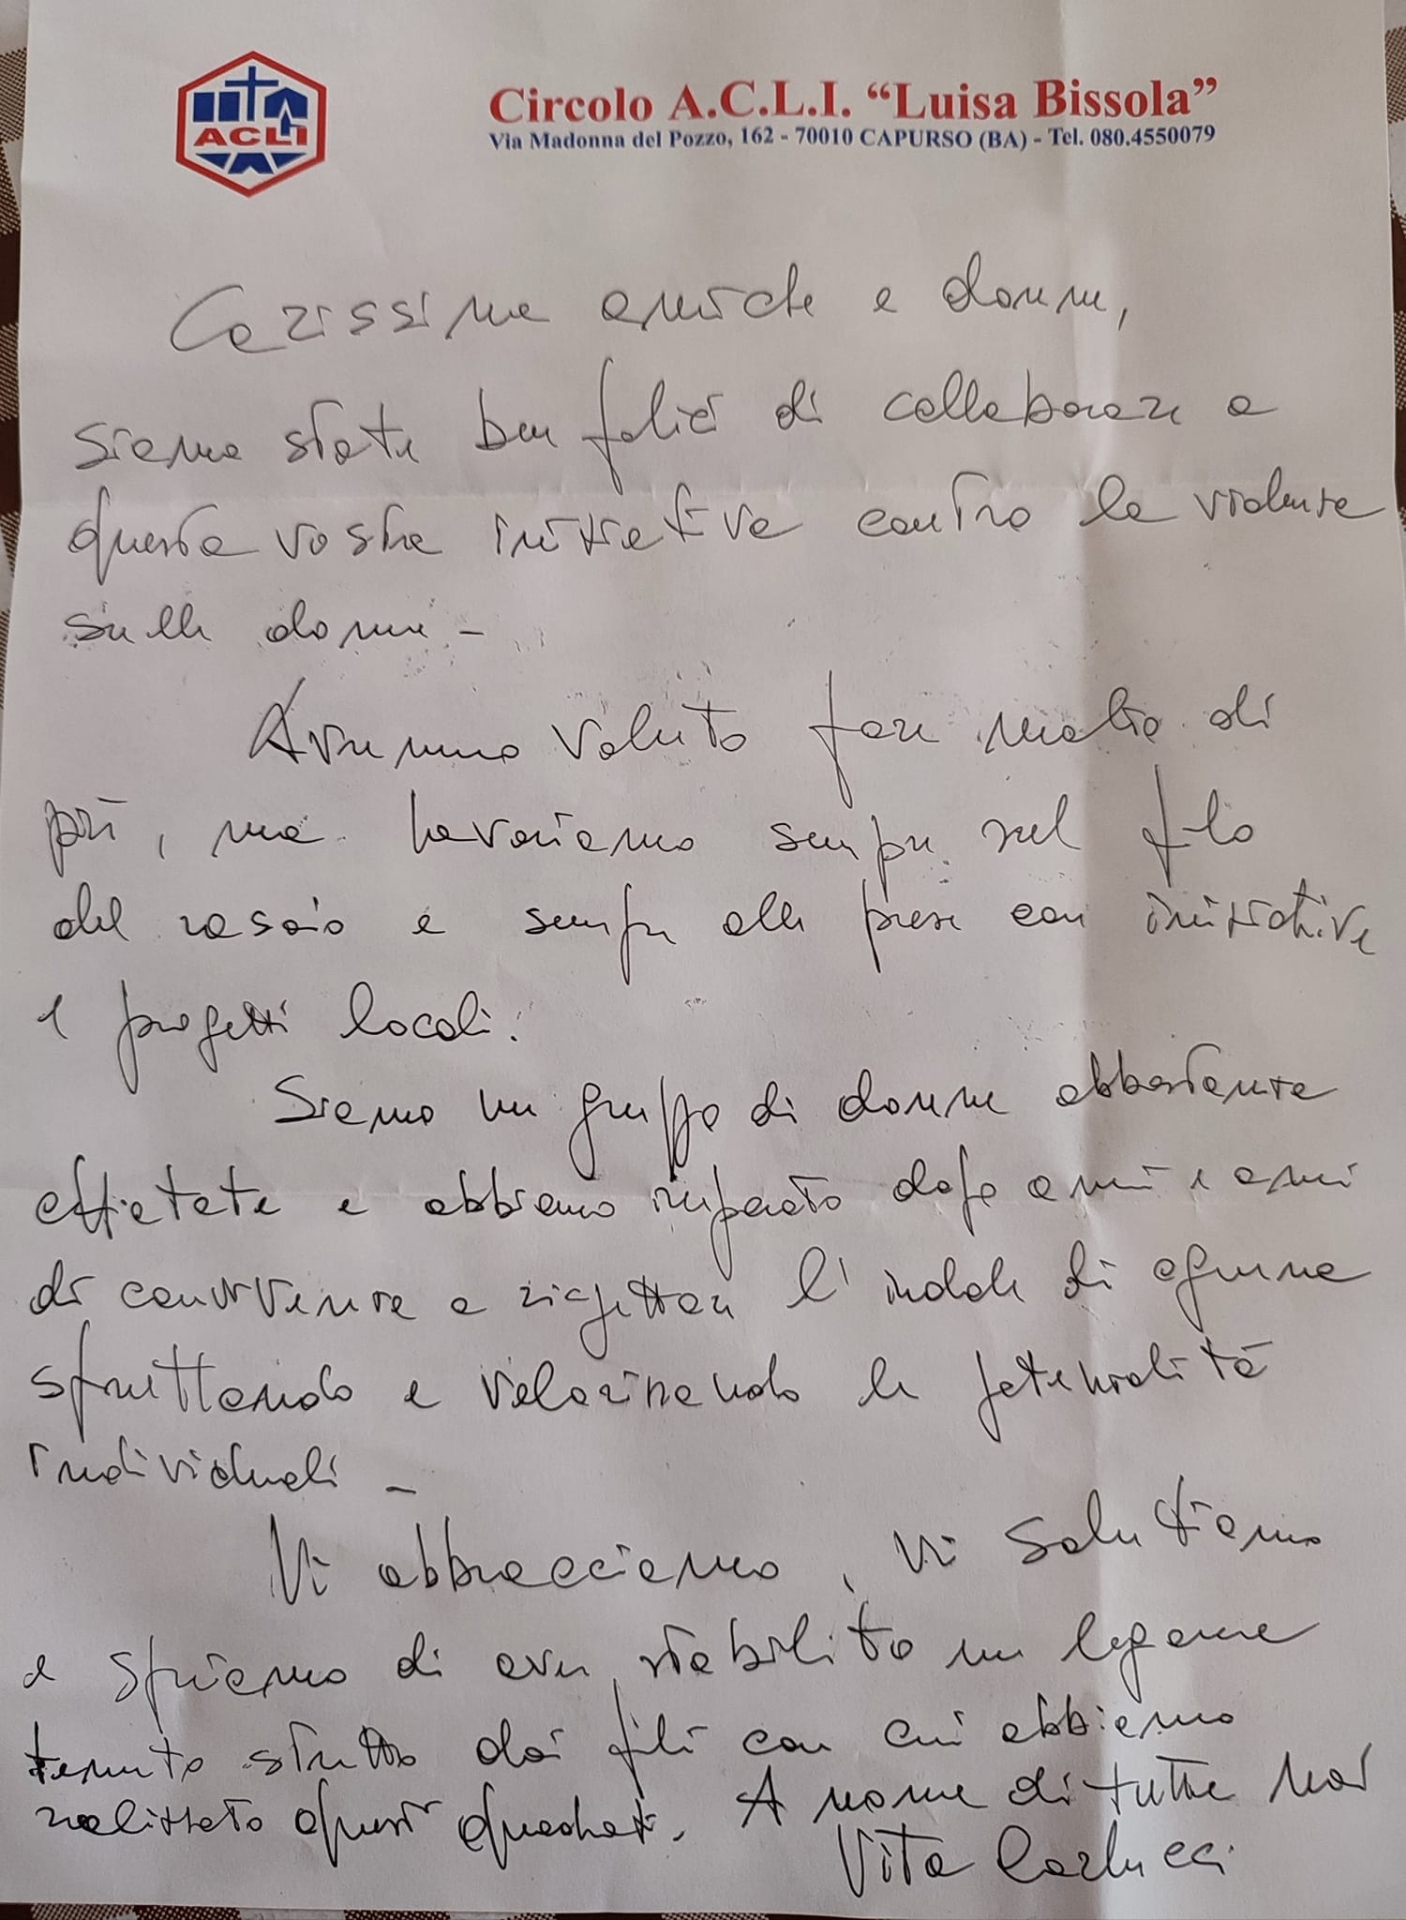 ACLI
Circolo A.C.L.I. “Luisa Bissola”
Via Madonna del Pozzo, 162 - 70010 CAPURSO (BA) - Tel. 080.4550079
Carissime amiche e donne,
siamo state ben felici di collaborare a
questa vostra iniziativa contro la violenza
sulle donne -
Avremmo voluto fare molto di
più, ma lavoriamo sempre sul filo
del rasoio e sempre alle prese con iniziative
e progetti locali.
Siamo un gruppo di donne abbastanza
affiatate e abbiamo imparato dopo anni e anni
di convivenza a rispettare l'indole di ognuna
sfruttando e valorizzando le potenzialità
individuali -
Vi abbracciamo, vi salutiamo
e speriamo di aver stabilito un legame
tenuto stretto dai fili con cui abbiamo
realizzato questi quadrati. A nome di tutte noi
Vita Carlucci